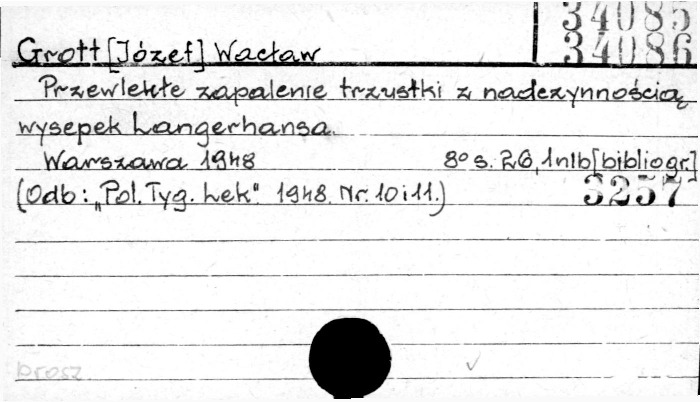 34085
34086
Grott [Józef] Wacław
Przewlekłe zapalenie trzustki z nadczynnością
wysepek Langerhansa.
Warszawa 1948 8° s. 26, 1nlb [bibliogr.]
(Odb: „Pol. Tyg. Lek" 1948. Nr. 10 i 11.) 3257
brosz